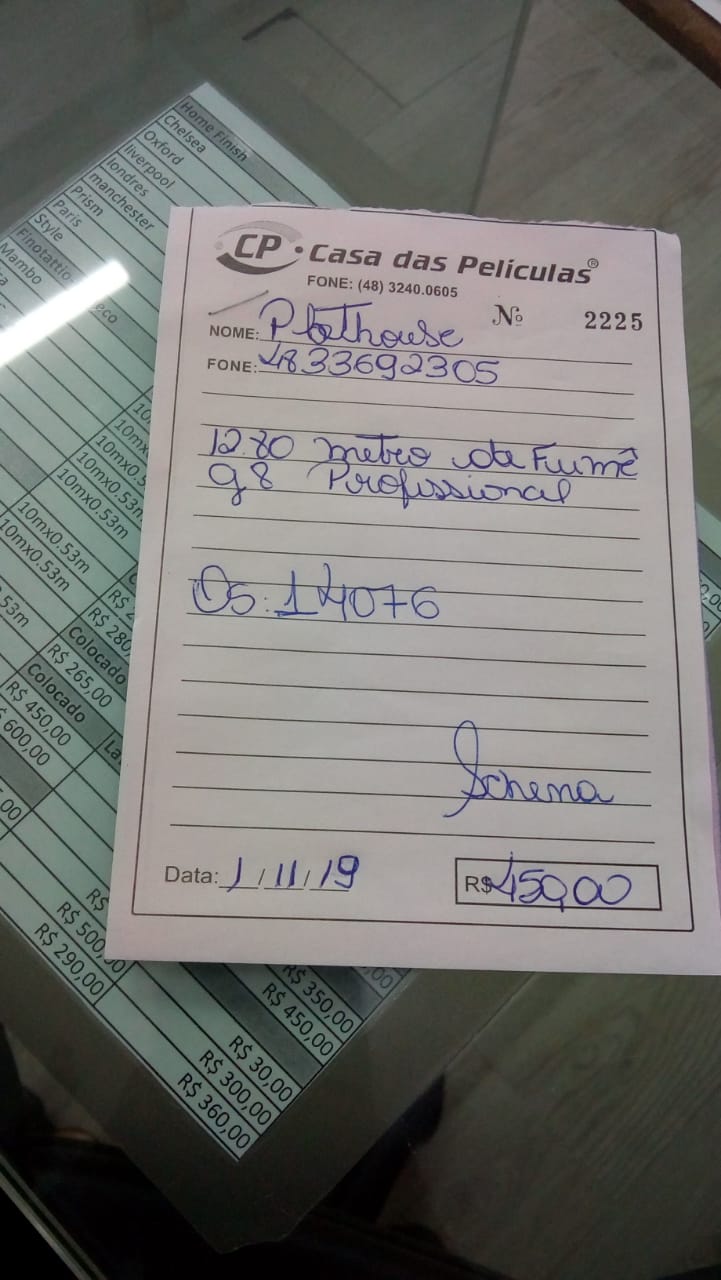 Home Finish
Chelsea
Oxford
liverpool
londres
manchester
Prism
Paris
Style
Mambo
10mx0.53m
10mx0.53m
10mx0.53m
10mx0.53m
.53m
R$ 280
Colocado
R$ 265,00
Colocado
R$ 450,00
600,00
R$ 500,00
R$ 290,00
R$ 350,00
R$ 450,00
R$ 30,00
R$ 300,00
R$ 360,00
CP Casa das Películas®
FONE: (48) 3240.0605
Nº 2225
NOME: Plothouse
FONE: 4833692305
12.80 metro de Fumê
g8 Profissional
Os: 14076
Schena
Data: 1/11/19
R$ 450,00